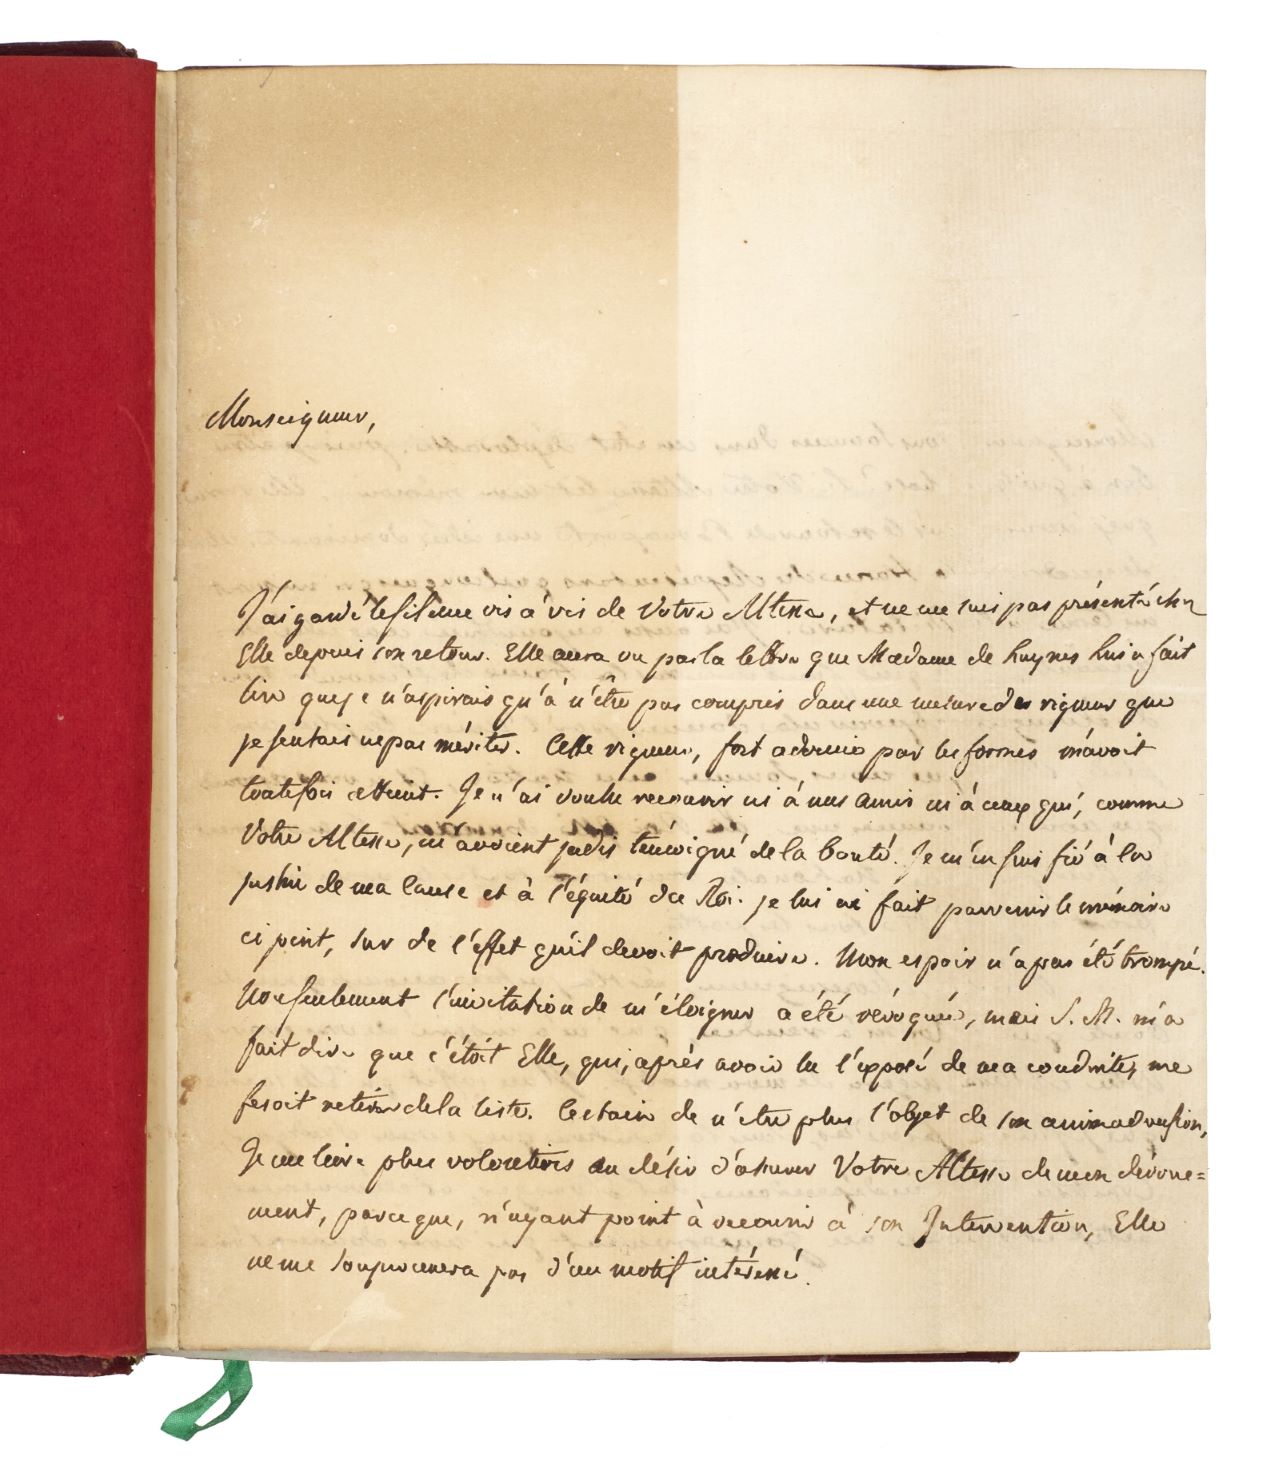 Monseigneur,
J'ai gardé le silence vis à vis de Votre Altesse, et ne me suis pas présenté chez
Elle depuis son retour. Elle aura vu par la lettre que Madame de Luynes lui a fait
lire que je n'aspirais qu'à n'être pas compris dans une mesure de rigueur que
je sentais ne pas mériter. Cette rigueur, fort adoucie par les formes m'avoit
toutefois atteint. Je n'ai voulu recourir ni à mes amis ni à ceux qui, comme
Votre Altesse, m'avoient jadis témoigné de la bonté. Je m'en suis fié à la
justice de ma cause et à l'équité du Roi. je lui ai fait parvenir le mémoire
ci joint, sur de l'effet qu'il devoit produire. Mon espoir n'a pas été trompé.
Non seulement l'invitation de m'éloigner a été révoquée, mais S. M. m'a
fait dire que c'étoit Elle, qui, après avoir lu l'exposé de ma conduite, me
fesoit retirer de la liste. Certain de n'être plus l'objet de son animadversion,
Je me livre plus volontiers au désir d'assurer Votre Altesse de mon dévoue=
ment, parceque, n'ayant point à recourir à son Intervention, Elle
ne me soupçonnera pas d'un motif intéressé.